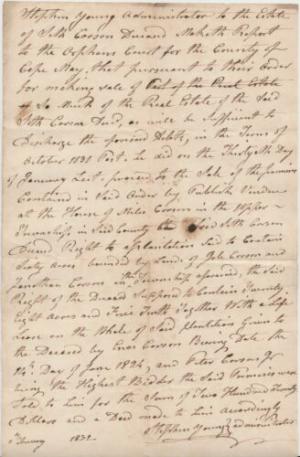 Stephen Young Administrator to the Estate
of Seth Corson Deceased Maketh Report
to the Orphans Court for the County of
Cape May, that pursuant to their Order
for making sale of Part of the Real Estate
of So Much of the Real Estate of the Said
Seth Corson Decd, as will be Sufficient to
Discharge the Debts, in the Term of
October 1831 Past. he did on the Thirtyeth Day
of January Last proceed to the Sale of the premises
Contained in Said Order by Publick Vendue
at the House of Miles Corson in the Upper
Township in Said County the Said Seth Corson
Deceasd Right to a plantation Said to Contain
Sixty Acres bounded by Lands of Corson and
Jonathan Corson in the Township aforesaid, the Said
Right of the Deceasd Supposed to Contain Twenty
Eight Acres and Together With a Life
Lease on the Whole of Said plantation Given to
the Deceasd by Enos Corson Bearing Date the
14th Day of June 1824, and Peter Corson Jr
being the Highest Bidder the Said Primises were
Sold to him for the Sum of Two Hundred Twenty
Dollars and a Deed made to him Accordingly
Stephen Young administrator
1832.